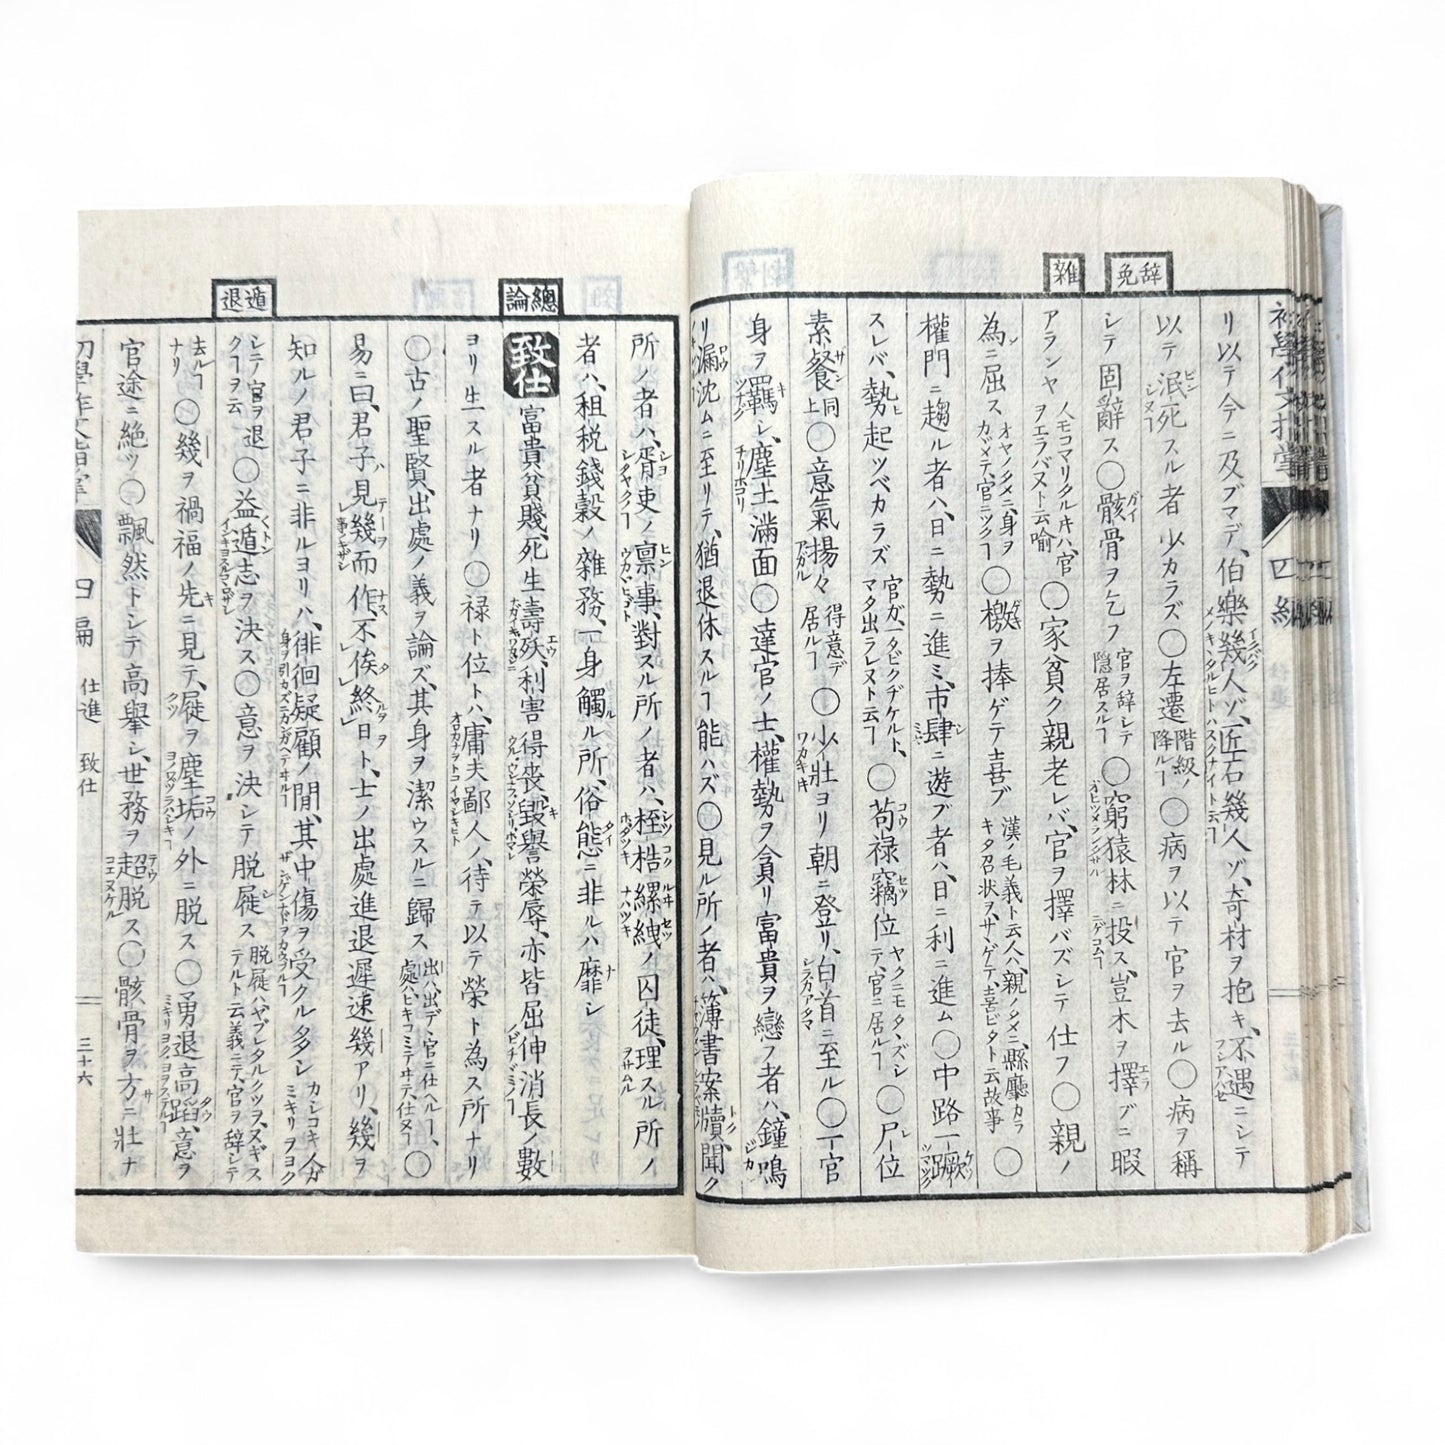 辞免
雜
リ以テ今ニ及ブマデ、伯樂幾人ゾ、匠石幾人ゾ、奇材ヲ抱キ、不遇ニシテ
以テ泯死スル者少カラズ〇左遷 階級ノ降ルヿ 〇病ヲ以テ官ヲ去ル〇病ヲ稱
シテ固辭ス〇骸骨ヲ乞フ 官ヲ辞シテ隠居スルヿ 〇窮猿林ニ投ス、豈木ヲ擇ブニ暇
アランヤ 人モコマリタル𪜈ハ、官ヲエラバヌト云喩 〇家貧ク親老レバ、官ヲ擇バズシテ仕フ〇親ノ
為ニ屈ス オヤノタメニ身ヲカヾメテ、官ニツクヿ 〇檄ヲ捧ゲテ喜ブ 漢ノ毛義ト云人ハ、親ノタメニ、縣廳カラキタ召状ヲ、サヽゲテ、喜ビタト云故事 〇
權門ニ趨ル者ハ、日ニ勢ニ進ミ、市肆ニ遊ブ者ハ、日ニ利ニ進ム〇中路一蹶
スレバ、勢起ツベカラズ 官ガ一タビクヂケルト、マタ出ラレヌト云ヿ 〇苟禄竊位 ヤクニモタヽズシテ、官ニ居ルヿ 〇尸位
素餐 同上 〇意氣揚々 得意デ居ルヿ 〇少壯ヨリ朝ニ登リ、白首ニ至ル〇一官
身ヲ羈シ、塵土滿面〇達官ノ士、權勢ヲ貪リ富貴ヲ戀フ者ハ、鐘鳴
リ漏沈ムニ至リテ、猶退休スルヿ能ハズ〇見ル所ノ者ハ、簿書案牘、聞ク
總論
遁退
所ノ者ハ、胥吏ノ稟事、對スル所ノ者ハ、桎梏縲絏ノ囚徒、理スル所ノ
者ハ、租税錢穀ノ雜務、一身觸ル所、俗態ニ非ルハ靡シ
致仕 富貴貧賤、死生壽殀、利害得喪、毀譽榮辱、亦皆屈伸消長ノ數
ヨリ生スル者ナリ〇禄ト位トハ、庸夫鄙人ノ、待テ以テ榮ト為ス所ナリ
〇古ノ聖賢、出處ノ義ヲ論ズ、其ノ身ヲ潔ウスルニ歸ス 出ハ出デヽ官ニ仕ヘルヿ、處ハヒキコミテヰテ仕ヌヿ 〇
易ニ曰、君子見幾而作、不俟終日ト、士ノ出處進退遲速幾アリ、幾ヲ
知ルノ君子ニ非ルヨリハ、徘徊疑顧ノ間、其中傷ヲ受クル多シ カシコキ人ガミキリヲヨク
シテ官ヲ退クヿヲ云 〇益遁志ヲ決ス〇意ヲ決シテ脱屣ス 脱屣ハヤブレタルクツヲ、ヌギステルト云義ニテ、官ヲ辞シテ
去ルヿナリ 〇幾ヲ禍福ノ先ニ見テ、屣ヲ塵垢ノ外ニ脱ス〇勇退高蹈、意ヲ
官途ニ絶ツ〇飄然トシテ高擧シ、世務ヲ超脱ス〇骸骨ヲ方ニ壯ナ
四編 仕進 致仕
三十六